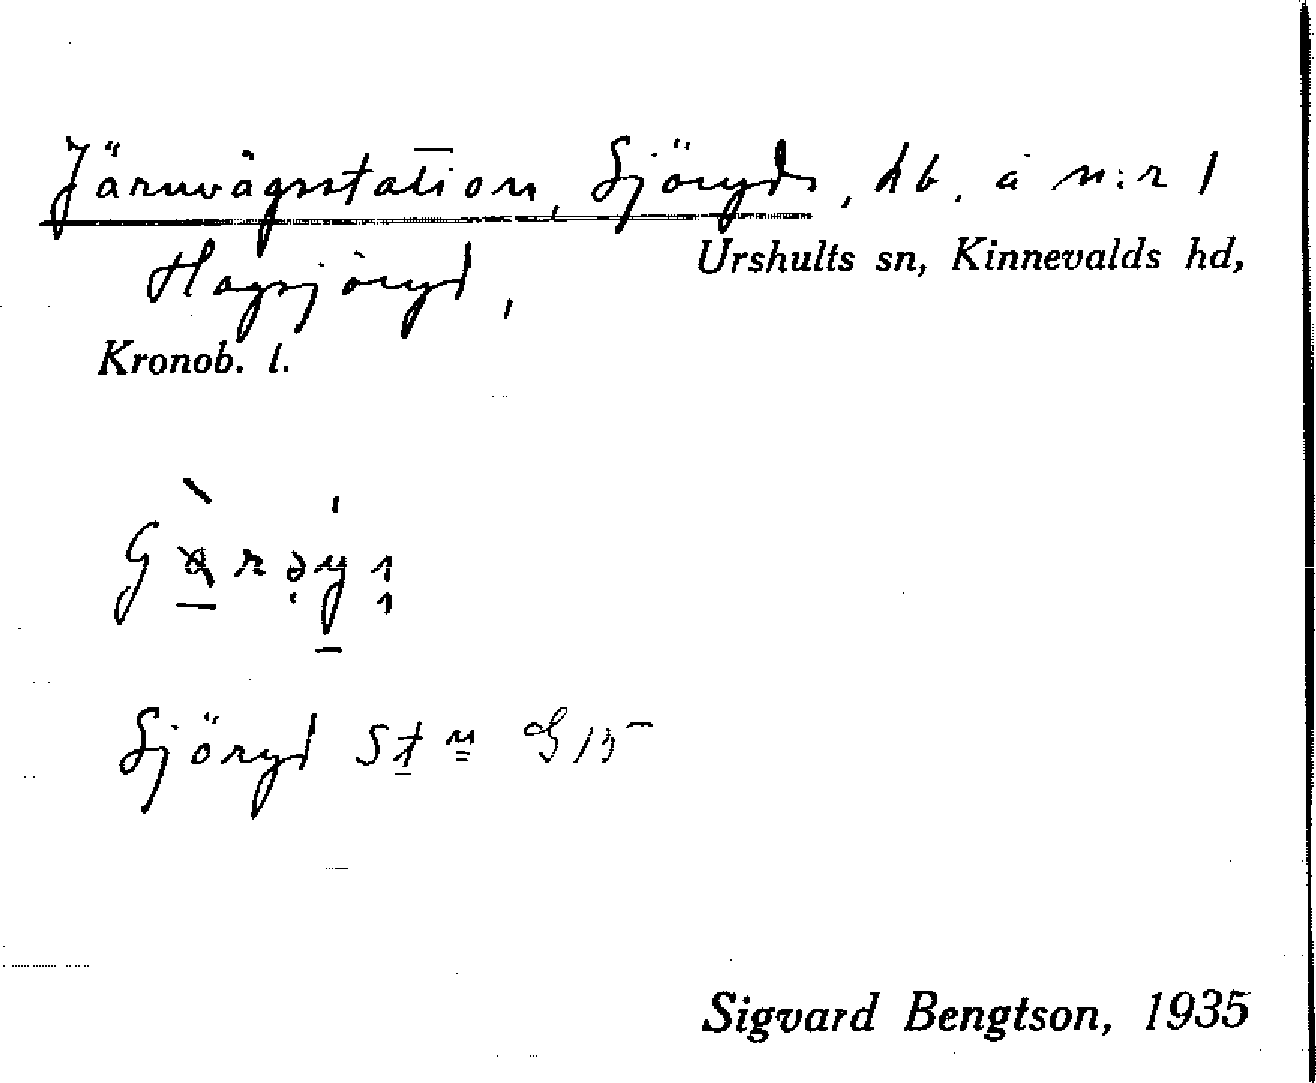 Järnvägsstation, Sjöryds, hb. å n:r 1
Hagsjöryd,
Urshults sn, Kinnevalds hd,
Kronob. l.
Sjöryd Stn
Sigvard Bengtson, 1935